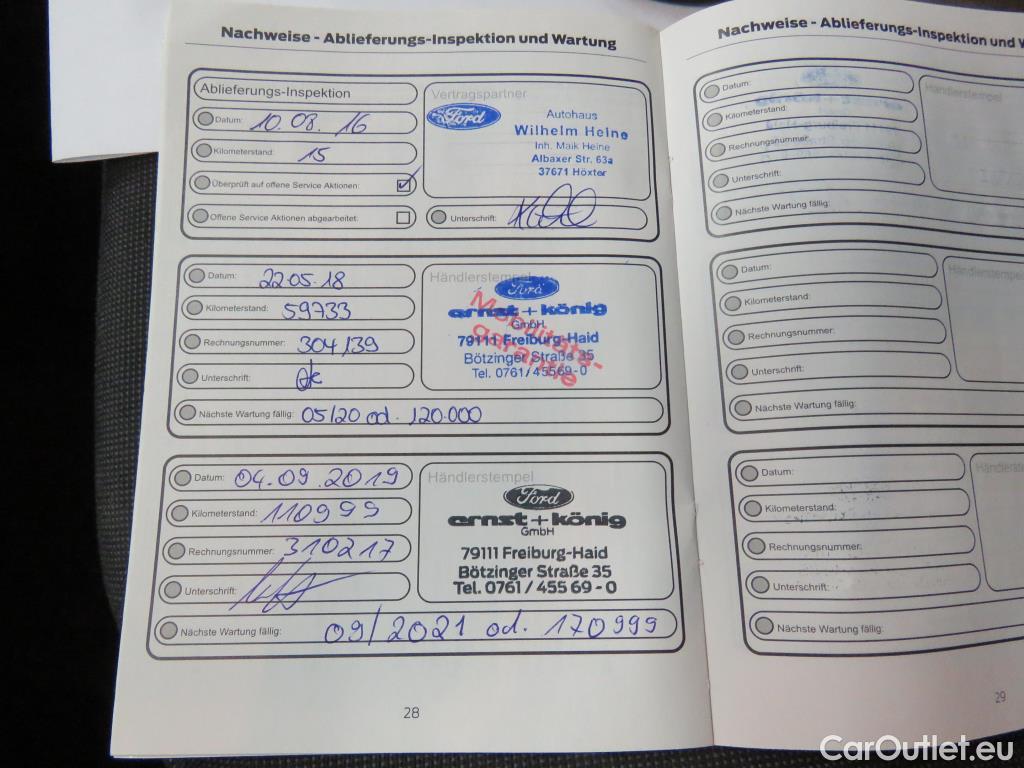 Nachweise - Ablieferungs-Inspektion und Wartung
Ablieferungs-Inspektion
Datum: 10.08.16
Kilometerstand: 15
Überprüft auf offene Service Aktionen:
Offene Service Aktionen abgearbeitet:
Vertragspartner
Ford
Autohaus
Wilhelm Heine
Inh. Maik Heine
Albaxer Str. 63a
37671 Höxter
Unterschrift:
Datum: 22.05.18
Kilometerstand: 59733
Rechnungsnummer: 304139
Unterschrift:
Händlerstempel
Ford
ernst + könig
GmbH
79111 Freiburg-Haid
Bötzinger Straße 35
Tel. 0761/45569-0
Mobilitäts-
garantie
Nächste Wartung fällig: 05/20 od. 120.000
Datum: 04.09.2019
Kilometerstand: 110999
Rechnungsnummer: 310217
Unterschrift:
Händlerstempel
Ford
ernst + könig
GmbH
79111 Freiburg-Haid
Bötzinger Straße 35
Tel. 0761 / 455 69 - 0
Nächste Wartung fällig: 09/2021 od. 170999
28
Nachweise - Ablieferungs-Inspektion und W
Datum:
Kilometerstand:
Rechnungsnummer:
Unterschrift:
Nächste Wartung fällig:
Händlerstempel
Datum:
Kilometerstand:
Rechnungsnummer:
Unterschrift:
Nächste Wartung fällig:
Händlerstempel
Datum:
Kilometerstand:
Rechnungsnummer:
Unterschrift:
Nächste Wartung fällig:
29
CarOutlet.eu